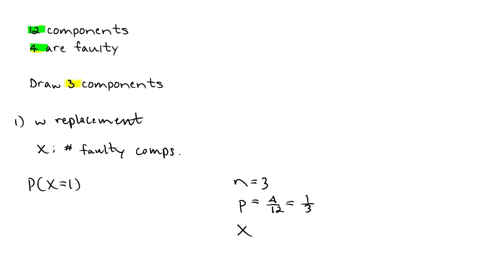 12 components
4 are faulty
Draw 3 components
1) w replacement
X: # faulty comps.
P(X=1)
n = 3
p = 4/12 = 1/3
X